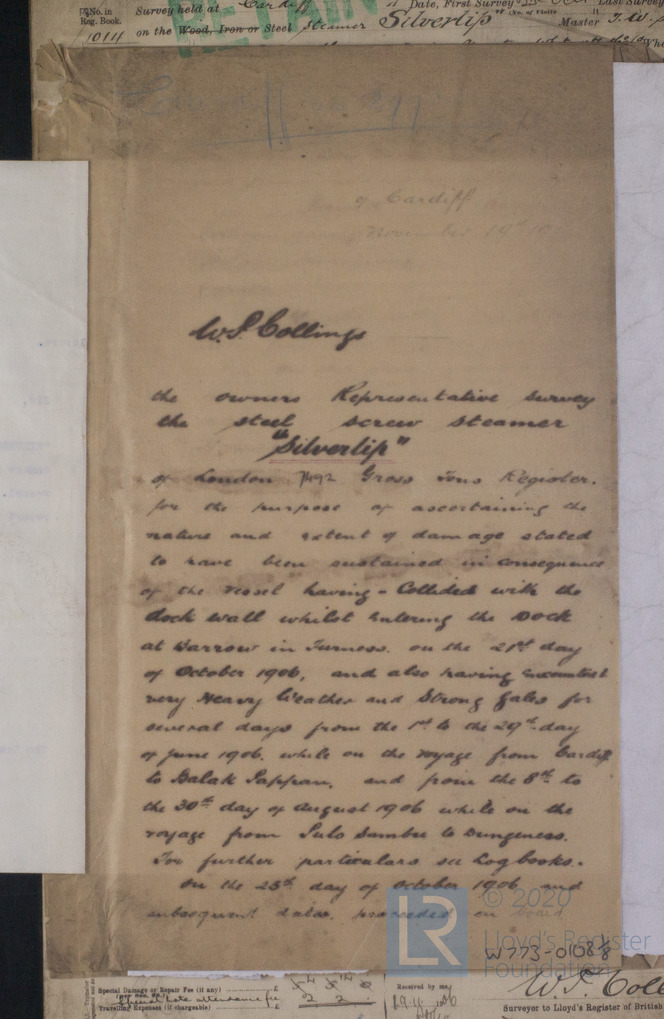 No. in Survey held at Cardiff Date, First Survey Last Survey
Reg. Book. (No. of Visits
1014 on the Wood, Iron or Steel Steamer Silverlip Master J. W.
RETAIN
of Cardiff
November 19th
W. S. Collings
the owners Representative survey
the steel screw steamer
"Silverlip"
of London 7492 Gross Tons Register.
for the purpose of ascertaining the
nature and extent of damage stated
to have been sustained in consequence
of the vessel having - Collided with the
dock wall whilst entering the Dock
at Barrow in Furness. on the 21st day
of October 1906, and also having encountered
very Heavy Weather and Strong Gales for
several days from the 1st to the 29th day
of June 1906. while on the voyage from Cardiff
to Balak Pappan. and from the 8th to
the 30th day of August 1906 while on the
voyage from Pulo Sambu to Dungeness.
For further particulars see Logbooks.
On the 25th day of October 1906 and
subsequent dates. proceeded on board
© 2020
LR Lloyd's Register
Foundation
W773-0108 8/8
Special Damage or Repair Fee (if any) £
(per Sec. 28.)
Travelling Expenses (if chargeable) £ 2 2
Received by me,
19.11.06
W. S. Coll
Surveyor to Lloyd's Register of British